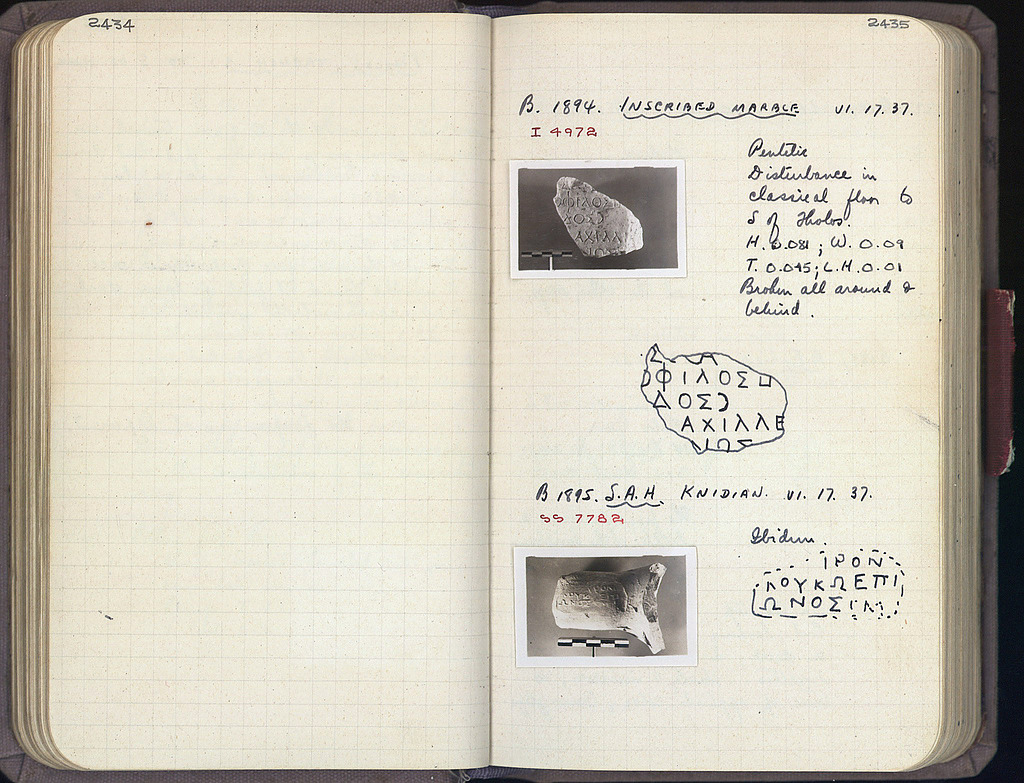 2434
2435
B. 1894. INSCRIBED MARBLE VI. 17. 37.
I 4972
Pentelic
Disturbance in
classical floor to
S of Tholos.
H. 0.081; W. 0.09
T. 0.045; L.H. 0.01
Broken all around &
behind.
Σ Α
ΟΦΙΛΟΣ
ΔΟΣϽ
ΑΧΙΛΛΕ
ΝΙΩΣ
B 1895. S.A.H. KNIDIAN. VI. 17. 37.
SS 7782
Ibidem.
ΙΡΟΝ
ΛΟΥΚΩΕΠΙ
ΩΝΟΣ